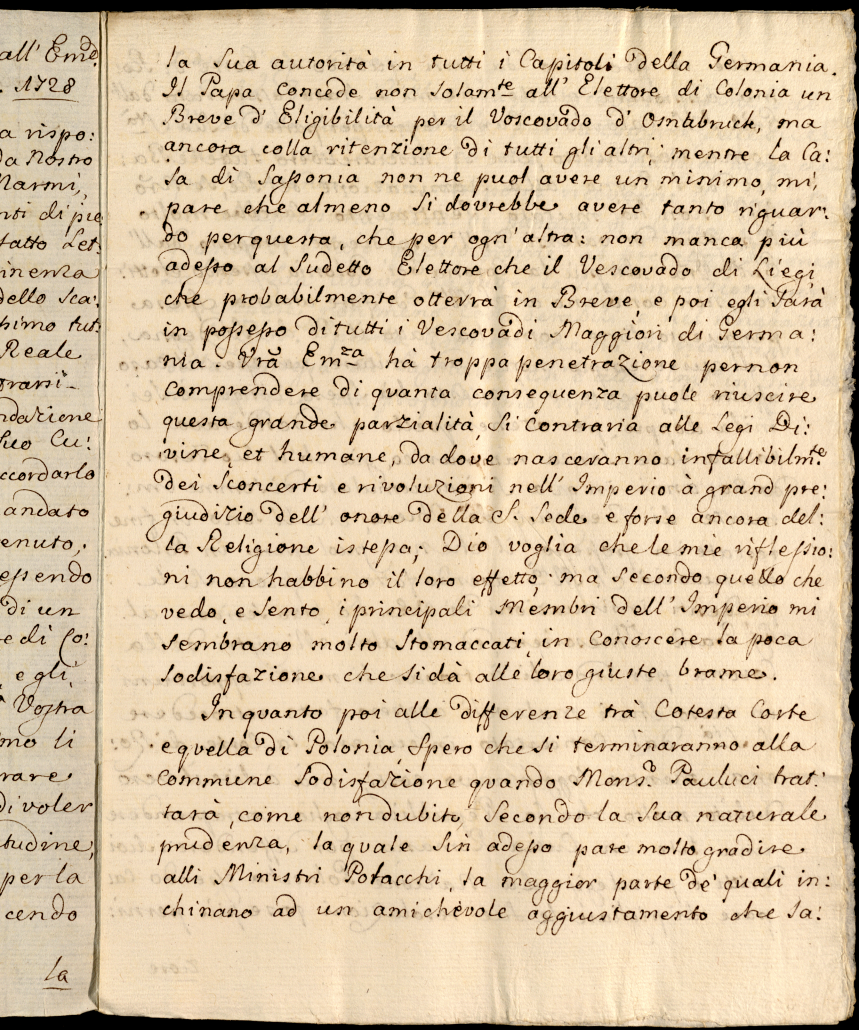 all' Em.
. 1728
a rispo:
da Nostro
Marmi,
nti di pie
fatto Let:
inenza
dello Sca:
simo tut:
Reale
trarsi-
ndazione
suo Cu:
ccordarlo
andato
enuto,
essendo
di un
e di Co:
, egli,
Vostra
mo li
rare
di voler
tudine,
per la
cendo
la
la Sua autorità in tutti i Capitoli della Germania.
Il Papa concede non solam.te all' Elettore di Colonia un
Breve d' Eligibilità per il Voscovado d' Osnabruck, ma
ancora colla ritenzione di tutti gli altri; mentre la Ca:
sa di Sassonia non ne puol avere un minimo, mi,
pare che almeno si dovrebbe avere tanto riguar:
do per questa, che per ogn' altra: non manca più
adesso al Sudetto Elettore che il Vescovado di Liegi
che probabilmente otterrà in Breve, e poi egli sarà
in possesso di tutti i Vescovadi Maggiori di Germa:
nia. Vrã Em.za hà troppa penetrazione per non
comprendere di quanta conseguenza puole riuscire
questa grande parzialità, si contraria alle Legi Di:
vine, et humane, da dove nasceranno infallibilm.te
dei sconcerti e rivoluzioni nell' Imperio à grand pre:
giudizio dell' onore della S. Sede e forse ancora del:
la Religione istessa; Dio voglia che le mie riflessio:
ni non habbino il loro effetto; ma secondo quello che
vedo, e sento, i principali Membri dell' Imperio mi
sembrano molto stomaccati, in conoscere la poca
sodisfazione che si dà alle loro giuste brame.
In quanto poi alle differenze trà Cotesta Corte
e quella di Polonia, spero che si terminaranno alla
commune sodisfazione quando Mons.r Pauluci trat:
tarà, come non dubito, secondo la sua naturale
prudenza, la quale sin adesso pare molto gradire
alli Ministri Polacchi, la maggior parte de' quali in:
chinano ad un amichevole aggiustamento che sa: